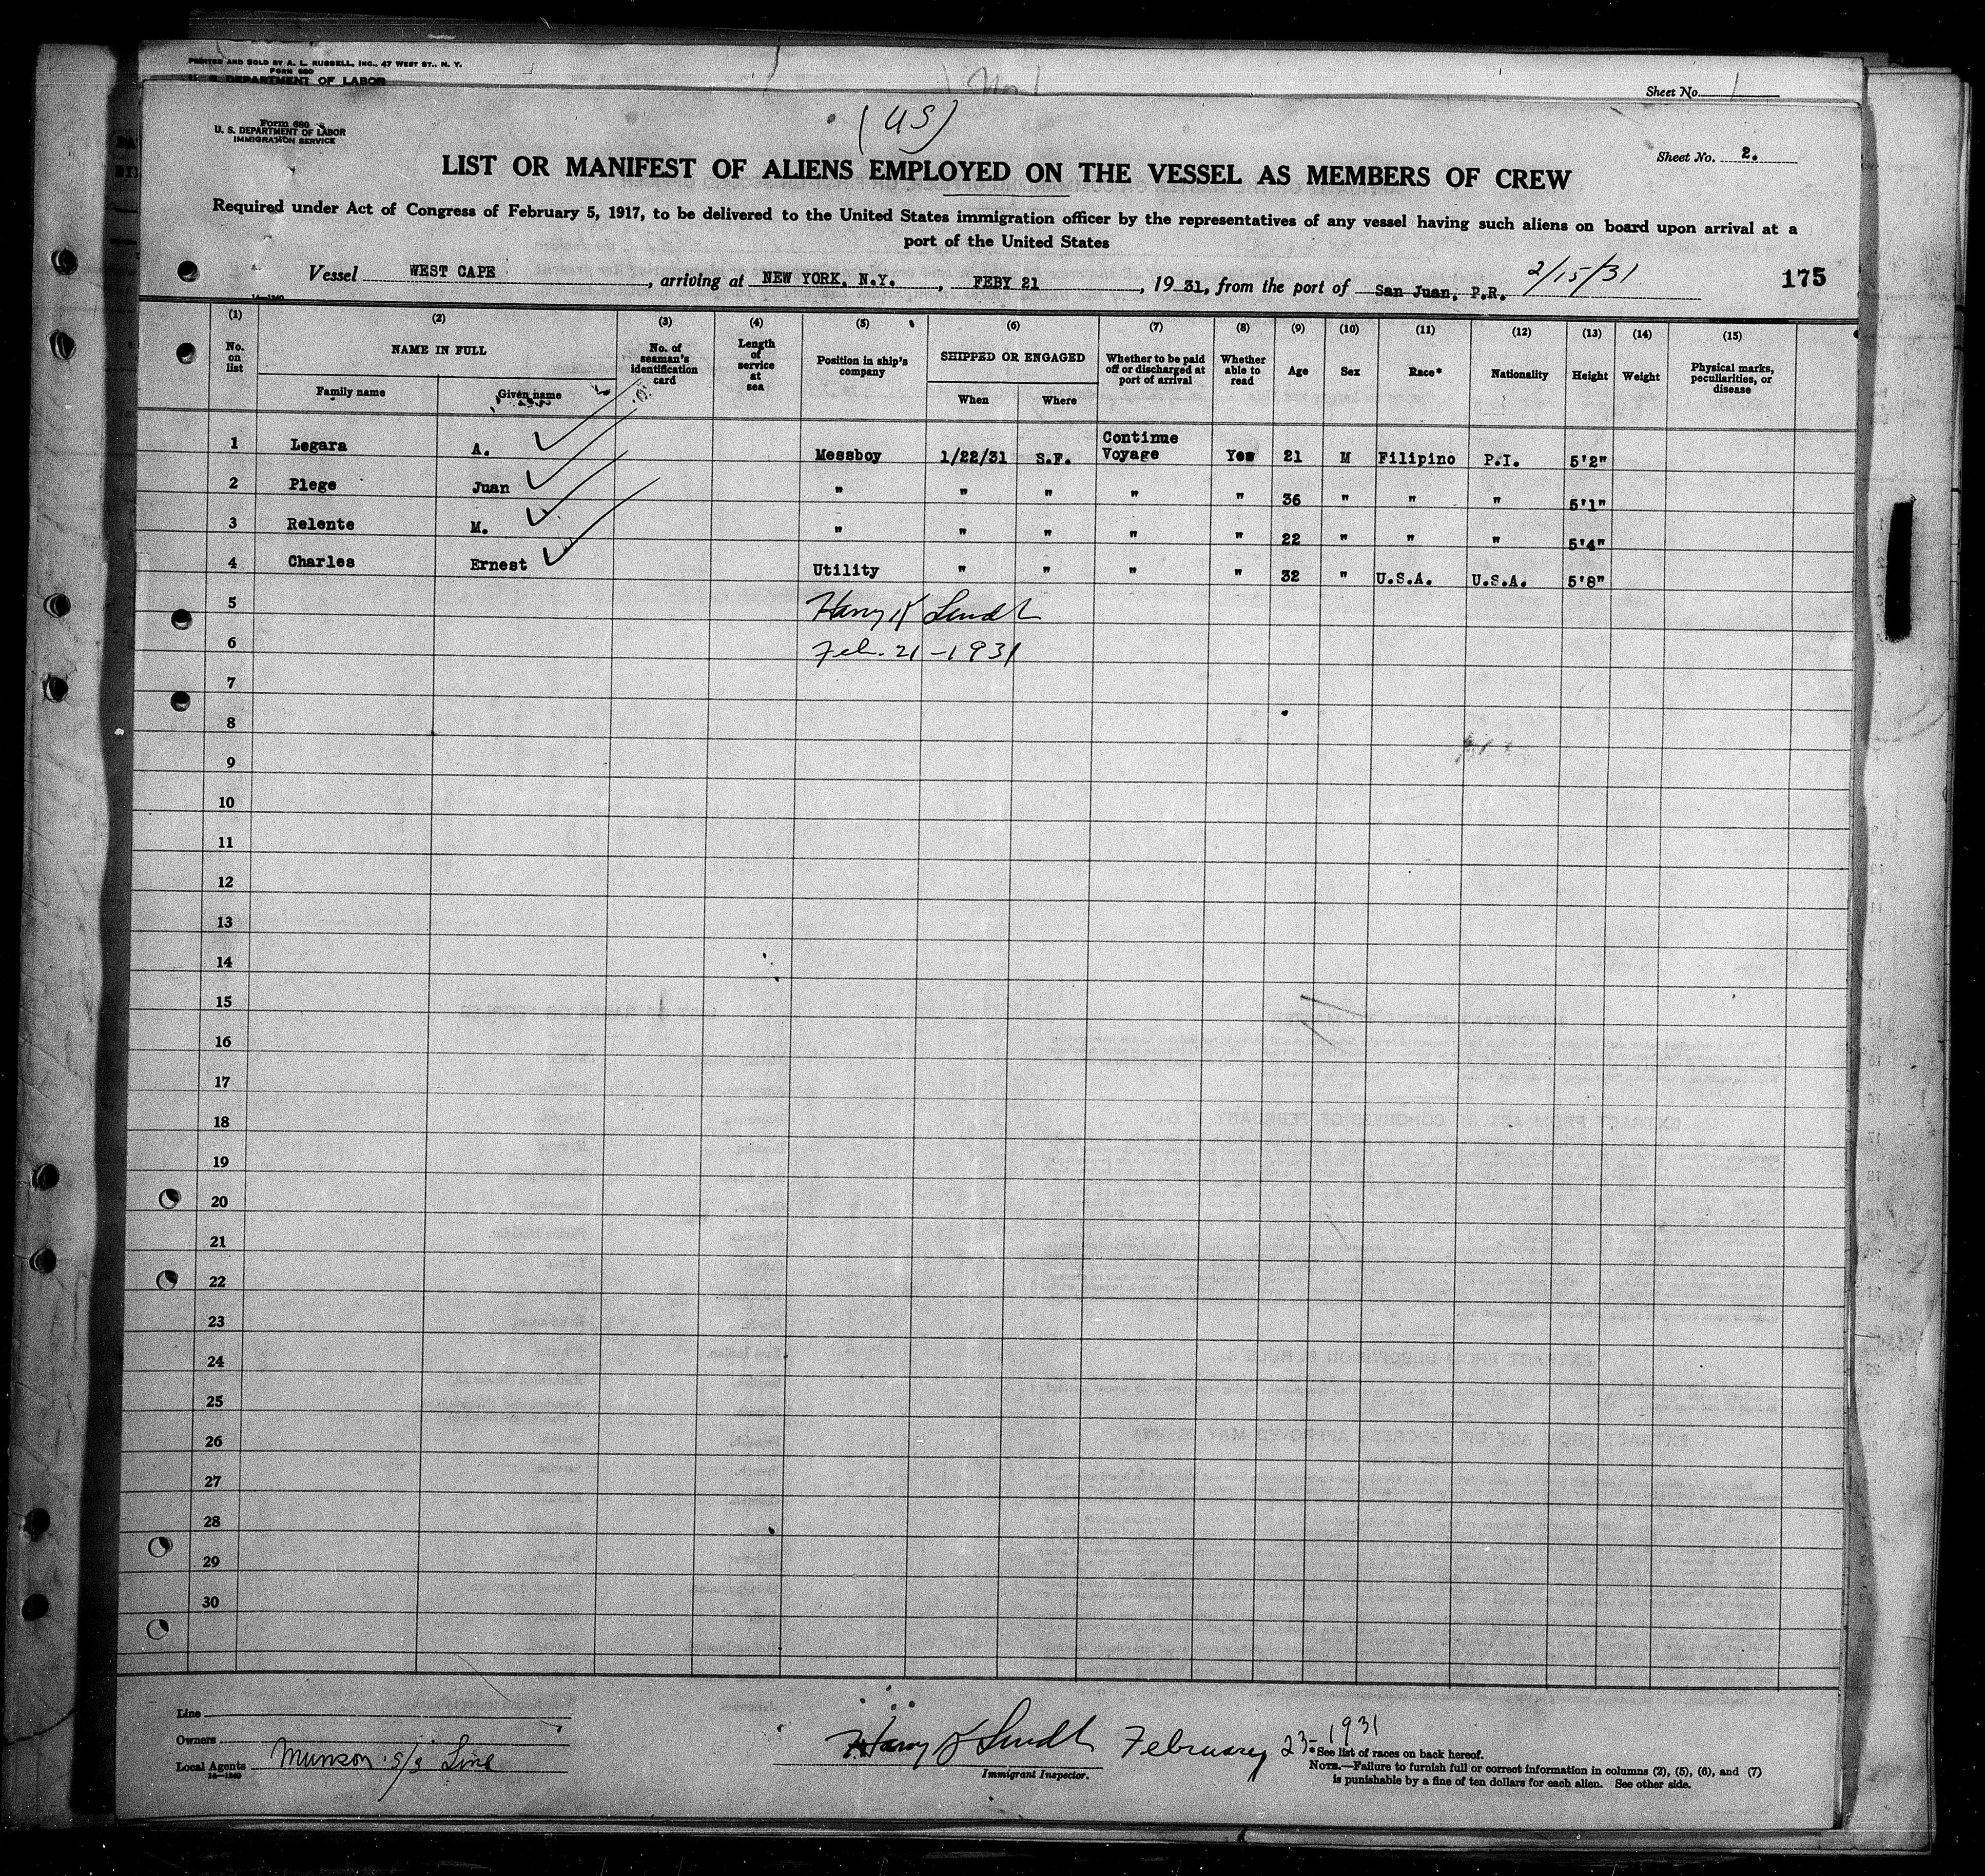 PRINTED AND SOLD BY A. L. RUSSELL, INC., 47 WEST ST., N. Y.
FORM 680
U. S. DEPARTMENT OF LABOR
Sheet No. 1
(US)
Form 680
U. S. DEPARTMENT OF LABOR
IMMIGRATION SERVICE
Sheet No. 2.
LIST OR MANIFEST OF ALIENS EMPLOYED ON THE VESSEL AS MEMBERS OF CREW
Required under Act of Congress of February 5, 1917, to be delivered to the United States immigration officer by the representatives of any vessel having such aliens on board upon arrival at a
port of the United States
Vessel WEST CAPE, arriving at NEW YORK, N.Y., FEBY 21, 19 31, from the port of San Juan, P.R. 2/15/31 175
14-1240
(1) (2) (3) (4) (5) (6) (7) (8) (9) (10) (11) (12) (13) (14) (15)
No. on list NAME IN FULL No. of seaman's identification card Length of service at sea Position in ship's company SHIPPED OR ENGAGED Whether to be paid off or discharged at port of arrival Whether able to read Age Sex Race* Nationality Height Weight Physical marks, peculiarities, or disease
Family name Given name When Where
1 Legara A. Messboy 1/22/31 S.F. Continue Voyage Yes 21 M Filipino P.I. 5'2"
2 Plege Juan " " " " " 36 " " " 5'1"
3 Relente M. " " " " " 22 " " " 5'4"
4 Charles Ernest Utility " " " " 32 " U.S.A. U.S.A. 5'8"
5 Harry Lindt
6 Feb. 21-1931
7
8
9
10
11
12
13
14
15
16
17
18
19
20
21
22
23
24
25
26
27
28
29
30
Line
Owners
Local Agents Munson S/S Line
14-1240
Harry Lindt February 23-1931
Immigrant Inspector.
*See list of races on back hereof.
NOTE.—Failure to furnish full or correct information in columns (2), (5), (6), and (7)
is punishable by a fine of ten dollars for each alien. See other side.